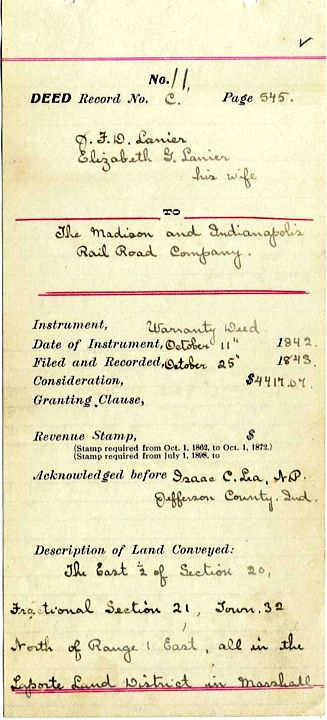 No. 11,
DEED Record No. C. Page 545.
J. F. D. Lanier
Elizabeth G. Lanier
his wife
TO
The Madison and Indianapolis
Rail Road Company.
Instrument, Warranty Deed
Date of Instrument, October 11" 1842.
Filed and Recorded, October 25" 1843.
Consideration, $4417.07.
Granting Clause,
Revenue Stamp, $
(Stamp required from Oct. 1, 1862, to Oct. 1, 1872.)
(Stamp required from July 1, 1898, to
Acknowledged before Isaac C. Lea, N.P.
Jefferson County. Ind.
Description of Land Conveyed:
The East ½ of Section 20,
Fractional Section 21, Town. 32
North of Range 1 East, all in the
Laporte Land District in Marshall